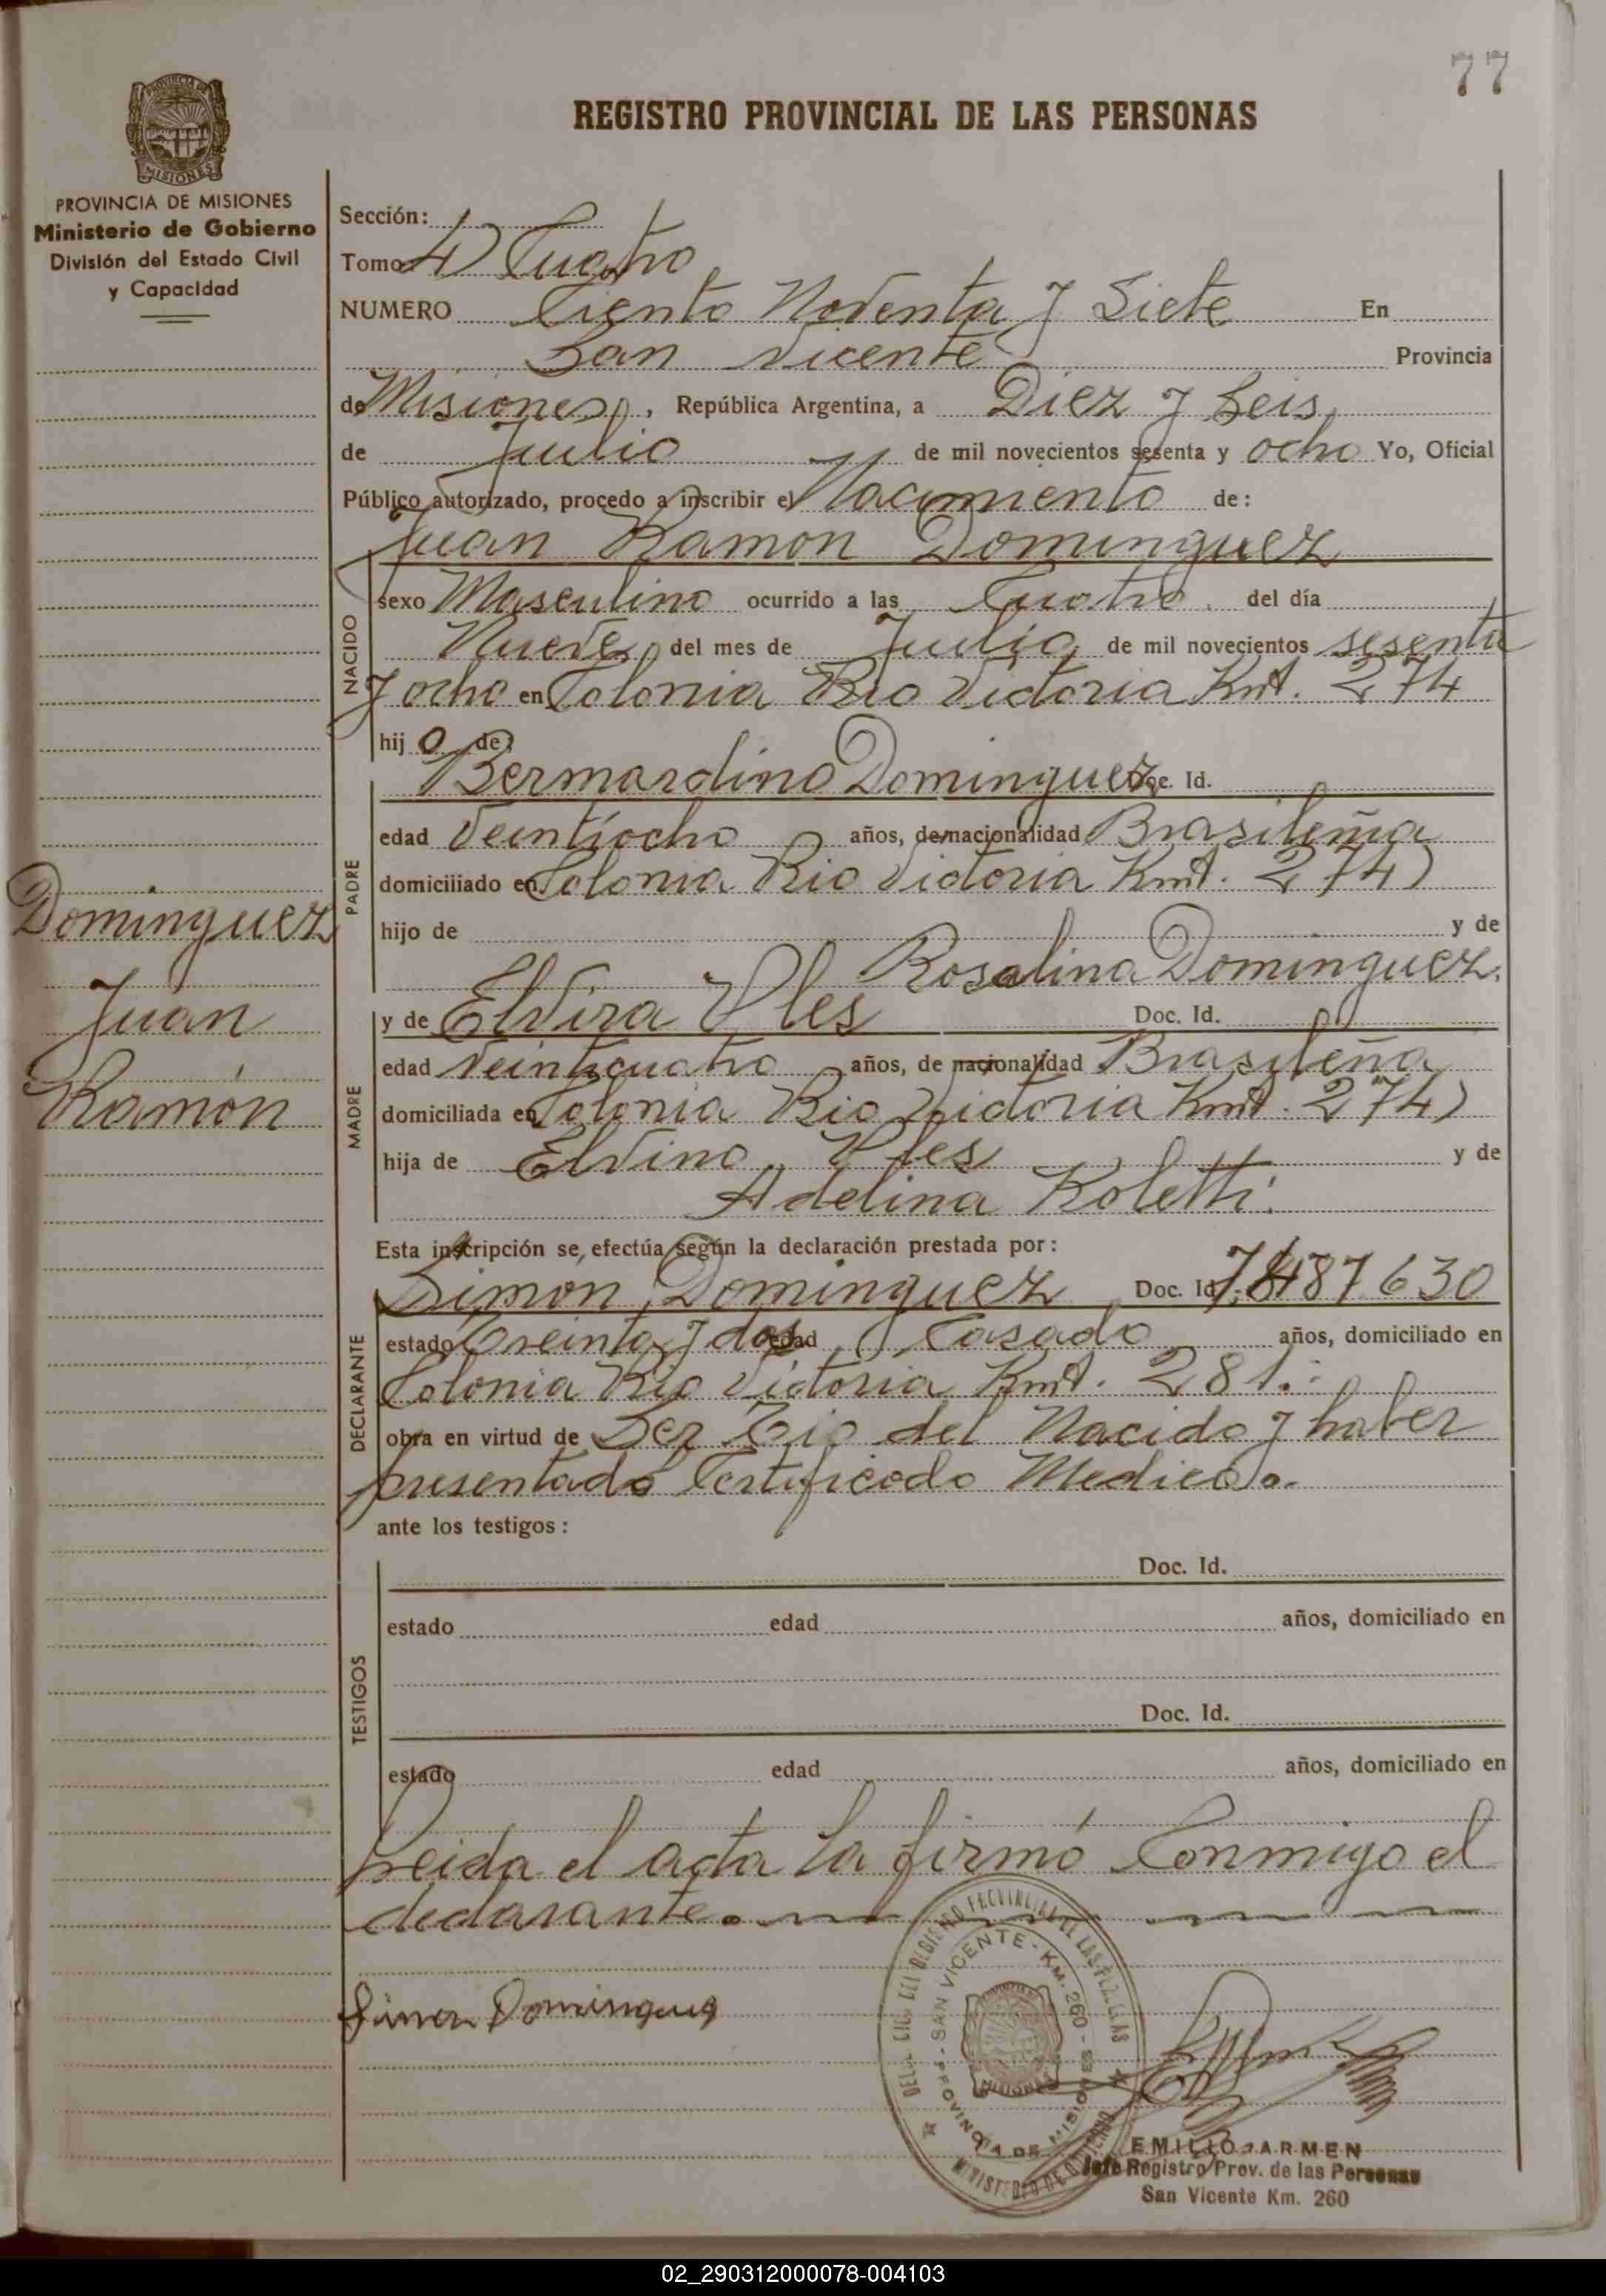 77
REGISTRO PROVINCIAL DE LAS PERSONAS
PROVINCIA DE MISIONES
MISIONES
PROVINCIA DE MISIONES
Ministerio de Gobierno
División del Estado Civil
y Capacidad
Dominguez
Juán
Ramón
Sección:
Tomo 4) Cuatro
NUMERO Ciento Noventa y Siete En
San Vicente Provincia
de Misiones, República Argentina, a Diez y Seis,
de Julio de mil novecientos sesenta y ocho Yo, Oficial
Público autorizado, procedo a inscribir el Nacimiento de:
Juan Ramon Dominguez
NACIDO
sexo Masculino ocurrido a las Cuatro del día
Nueve del mes de Julio de mil novecientos sesenta
y ocho en Colonia Rio Victoria Kmt. 274
hijo de:
PADRE
Bermardino Dominguez Doc. Id.
edad Veintiocho años, de nacionalidad Brasileña
domiciliado en Colonia Rio Victoria Kmt. 274)
hijo de y de
Rosalina Dominguez.
MADRE
y de Elvira Doc. Id.
edad Veinticuatro años, de nacionalidad Brasileña
domiciliada en Colonia Rio Victoria Kmt. 274)
hija de Elvino y de
Adelina Koletti
Esta inscripción se efectúa según la declaración prestada por:
DECLARANTE
Simon Dominguez Doc. Id. 7.487630
estado Treinta y dos edad Casado años, domiciliado en
Colonia Rio Victoria Kmt. 281.
obra en virtud de Ser Tio del Nacido y haber
presentado Certificado Medico.
ante los testigos:
TESTIGOS
Doc. Id.
estado edad años, domiciliado en
Doc. Id.
estado edad años, domiciliado en
Leida el acta la firmó Conmigo el
declarante.
Simon Domingues
SAN VICENTE - KM. 260 - PROVINCIA DE MISIONES
MISIONES
EMILIO ARMEN
Jefe Registro Prov. de las Personas
San Vicente Km. 260
02_290312000078-004103